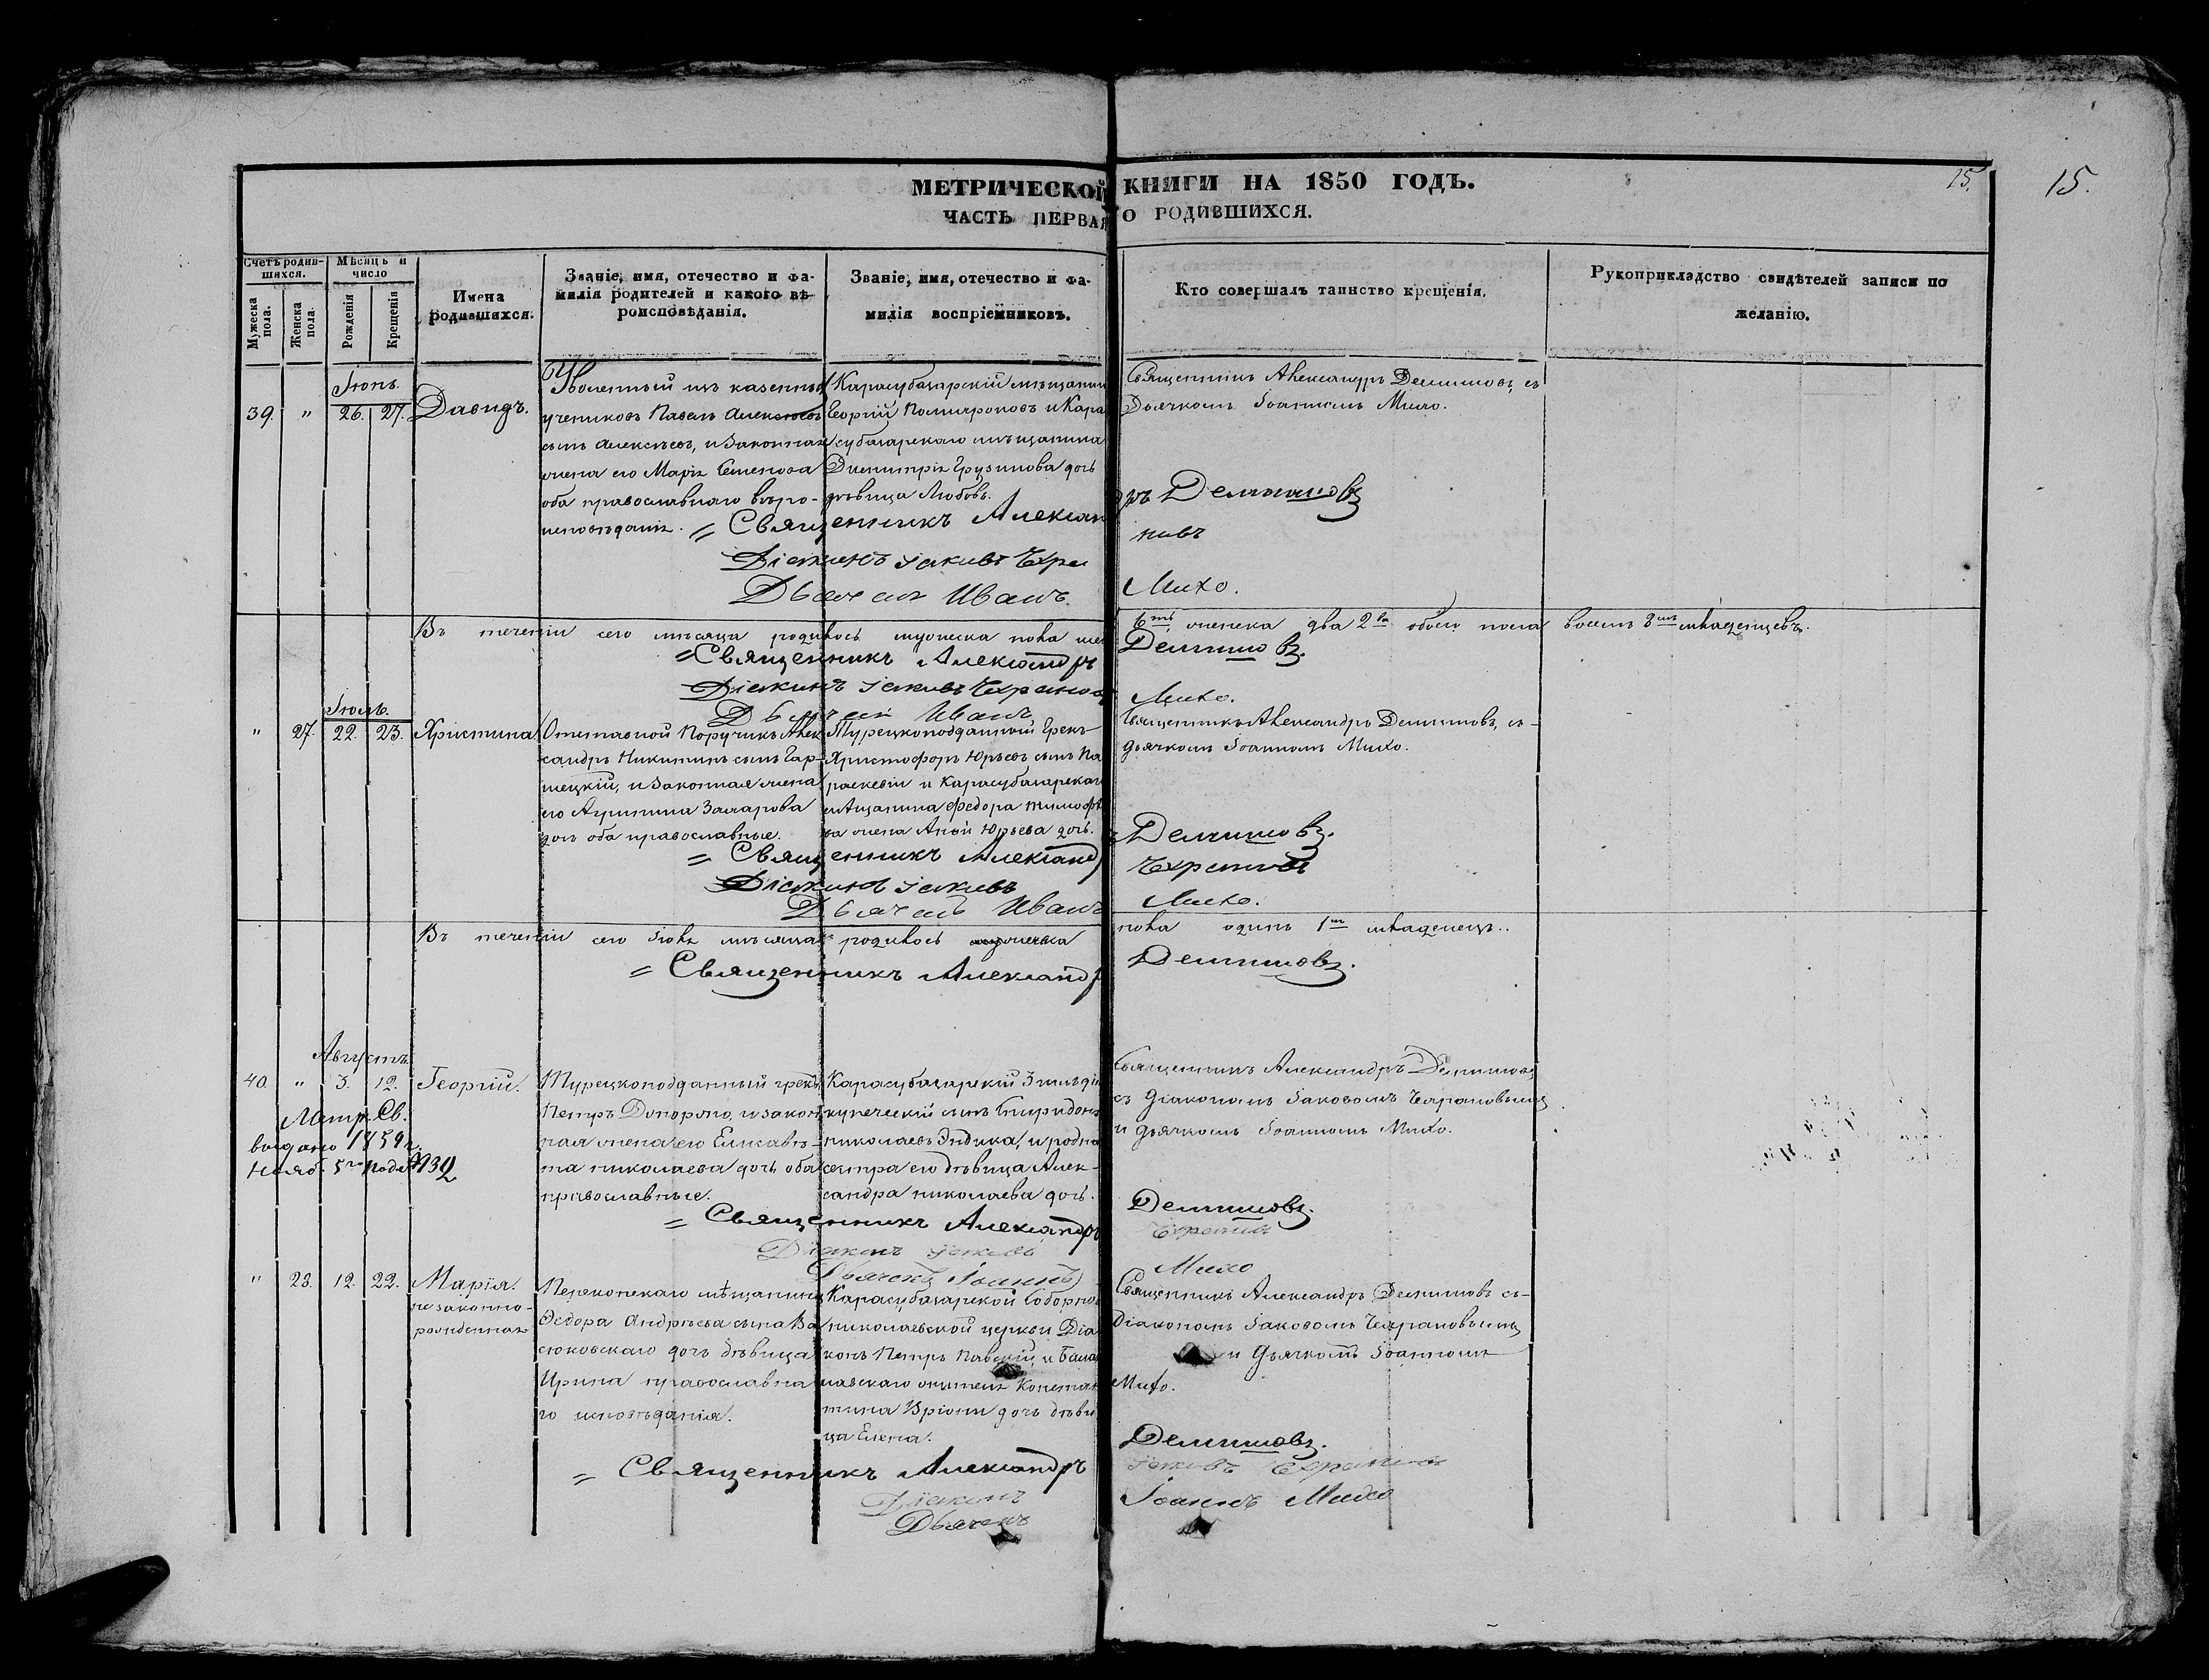 15.
15.
МЕТРИЧЕСКОЙ КНИГИ НА 1850 ГОДЪ.
ЧАСТЬ ПЕРВАЯ О РОДИВШИХСЯ.
Счетъ родившихся.
Мужеска пола.
Женска пола.
Мѣсяцъ и число
Рожденія
Крещенія
Имена родившихся.
Званіе, имя, отечество и фамилія родителей и какого вѣроисповѣданія.
Званіе, имя, отечество и фамилія воспріемниковъ.
Кто совершалъ таинство крещенія.
Рукоприкладство свидѣтелей записи по желанію.
Іюнь.
39. " 26. 27. Давидъ.
Уволенный изъ казенных
учениковъ Павелъ Алексѣевъ
сынъ Алексѣевъ, и законная
жена его Марія Семенова
оба православнаго вѣро-
исповѣданія.
Карасубазарскій мѣщанин
Георгій и Кара
субазарскаго мѣщанина
Димитрія Грузинова дочь
дѣвица Любовь.
Священникъ Александръ Демяновъ съ
Дьячкомъ Іоанномъ Михо.
= Священникъ Александръ Демяновъ
Діаконъ Іаковъ
Дьячекъ Иванъ Михо.
Въ теченіи сего мѣсяца родилось мужеска пола шес 6ть женска два 2ва обоего пола восемь 8мь младенцевъ.
= Священникъ Александръ Демяновъ.
Діаконъ Іаковъ
Дьячекъ Иванъ Михо.
Іюль.
" 27. 22. 23. Христина
Отставной Поручикъ Алек
сандръ Никитинъ сынъ Гар-
нецкій, и законная жена
его Агрипина Захарова
дочь оба православные.
Турецкоподданный Грекъ
Христофоръ Юрьевъ сынъ Па
раскевіи и Карасубазарскаг
мѣщанина Федора Тимофѣ
ва жена Анна Юрьева дочь.
Священникъ Александръ Демяновъ, съ
дьячкомъ Іоанномъ Михо.
= Священникъ Александръ Демяновъ.
Діаконъ Іаковъ
Дьячекъ Иванъ Михо.
Въ теченіи сего Іюля мѣсяца родилось женска пола одинъ 1нъ младенецъ.
= Священникъ Александръ Демяновъ.
Августъ
40. " 3. 12. Георгій.
Метр. Св.
выдано 1859 г.
Нояб. 5го подъ №32
Турецкоподданный грекъ
Петръ Допороло, и закон
ная жена его Елисавѣ-
та Николаева дочь оба
православные.
Карасубазарскій 3 гильдіи
купеческій сынъ Спиридонъ
Николаевъ Эндика, и родна
сестра его дѣвица Алек-
сандра Николаева дочь.
Священникъ Александръ Демяновъ,
съ Діакономъ Іаковомъ
и дьячкомъ Іоанномъ Михо.
= Священникъ Александръ Демяновъ.
Діаконъ Іаковъ
Дьячекъ Іоаннъ Михо
" 28. 12. 22. Марія.
незаконно-
рожденная
Перекопскаго мѣщанина
Ѳедора Андрѣева сына Ва
сюковскаго дочь дѣвица
Ирина православна
го исповѣданія.
Карасубазарской Соборно
николаевской церкви Діа
конъ Петръ Павскій, и Бала
клавскаго жителя Констан
тина Вріони дочь дѣви
ца Елена.
Священникъ Александръ Демяновъ съ
Діакономъ Іаковомъ
и Дьячкомъ Іоанномъ
Михо.
= Священникъ Александръ Демяновъ.
Діаконъ Іаковъ
Дьячекъ Іоаннъ Михо